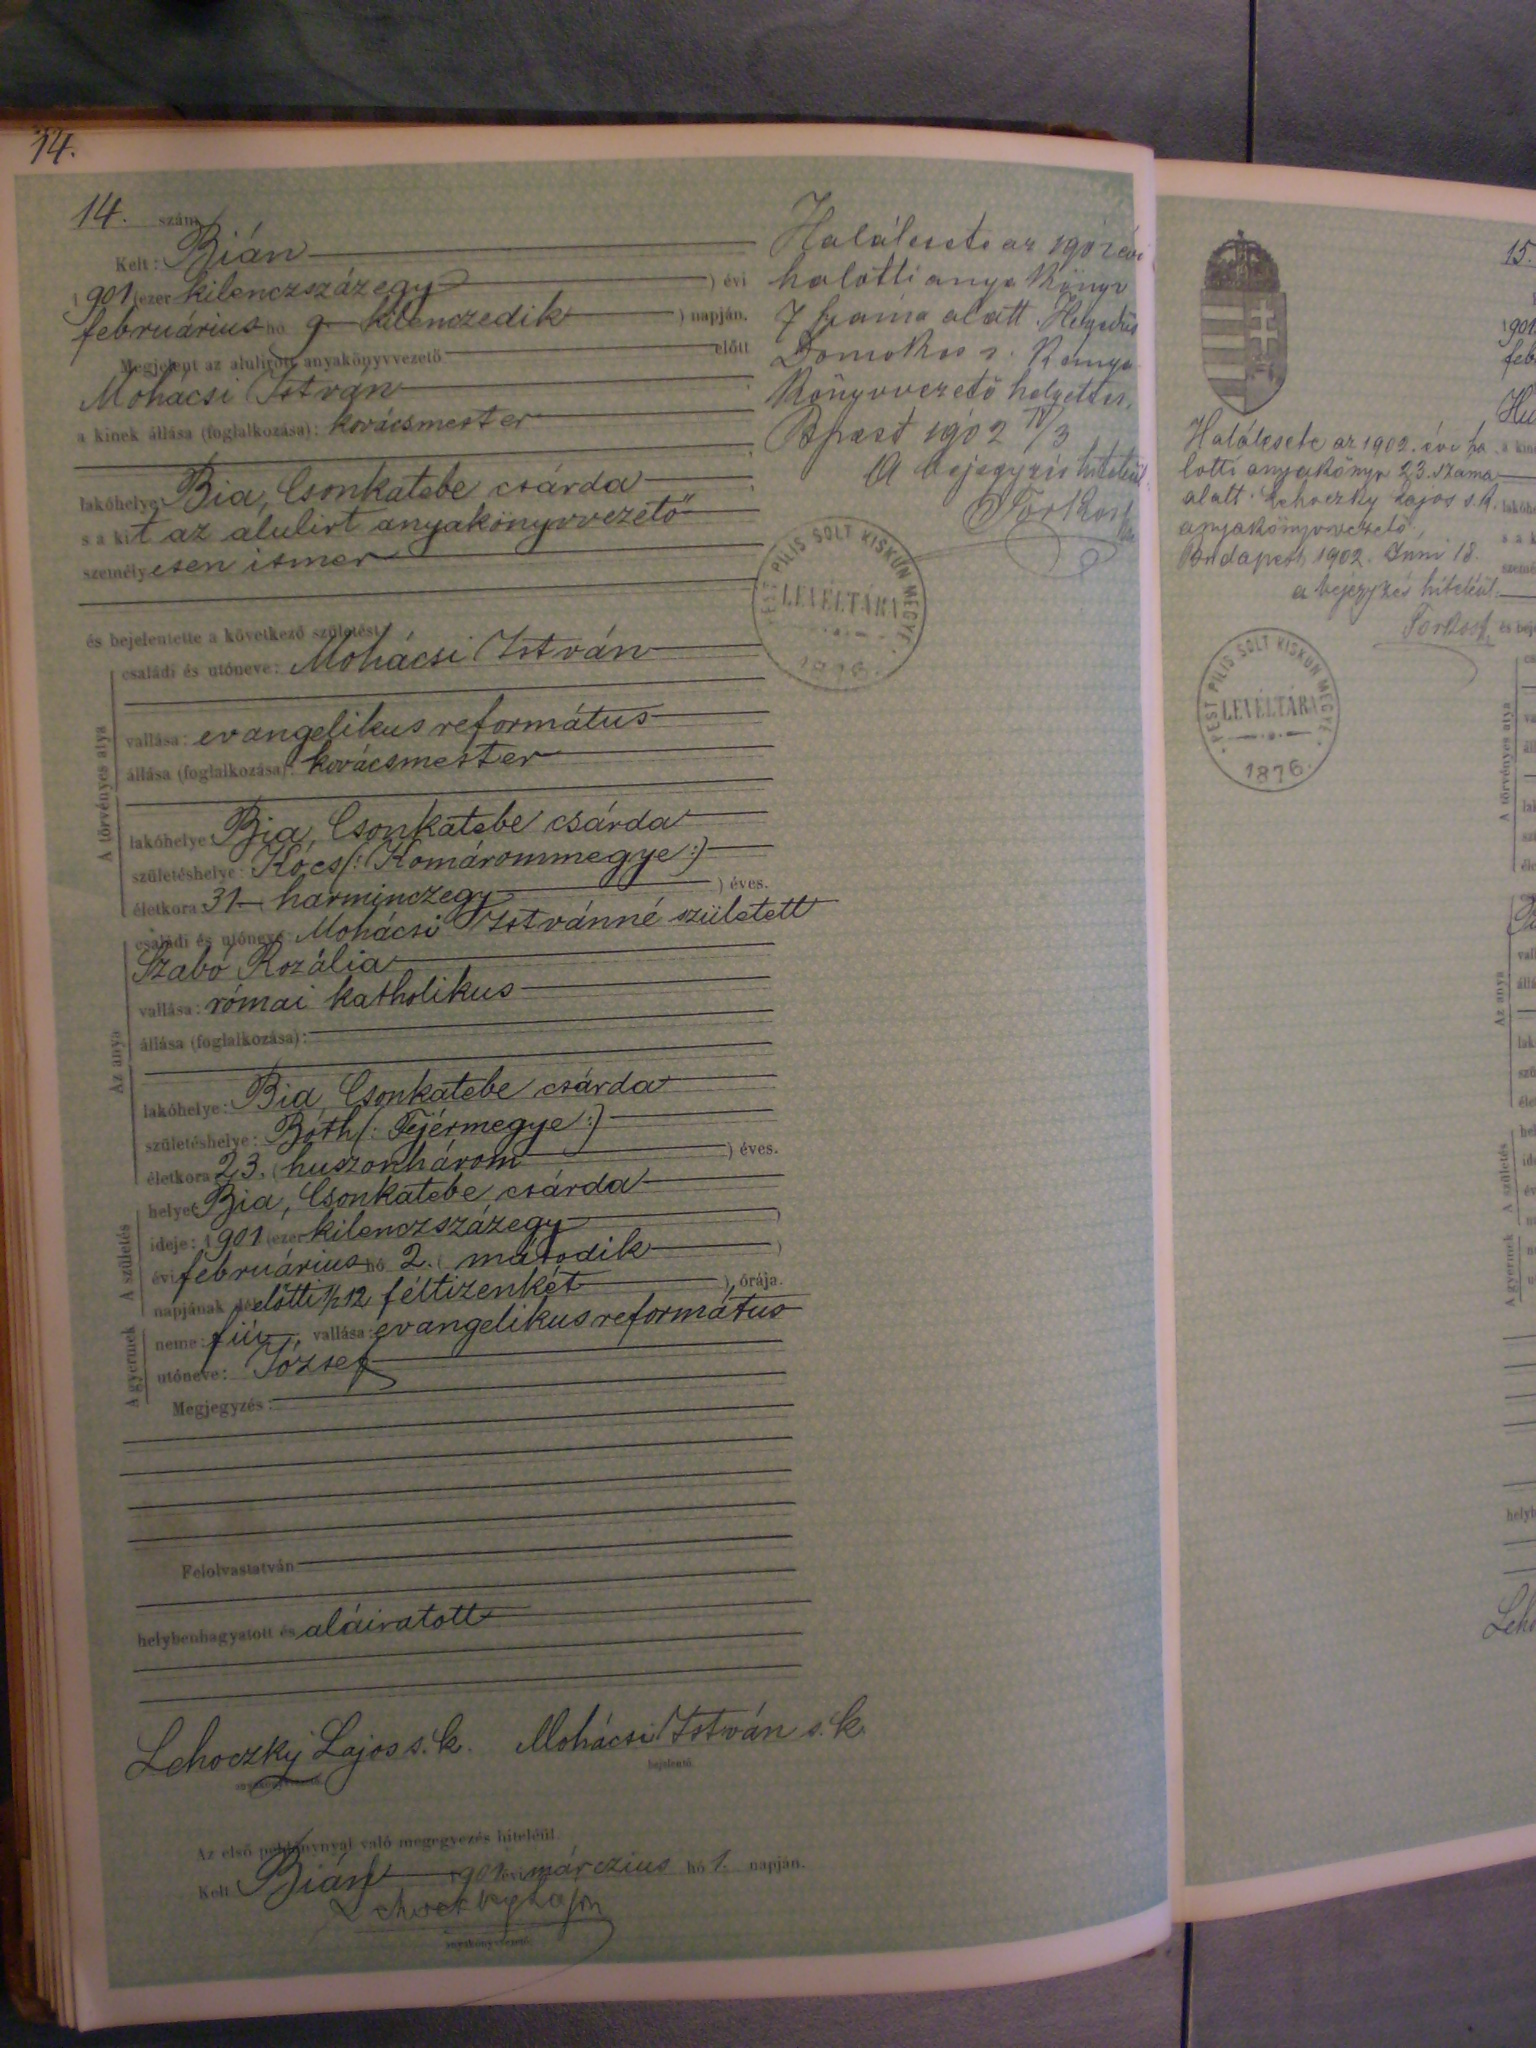 14.
14. szám
Kelt: Bián
1901 (ezer kilenczszázegy) évi
februárius hó 9 kilenczedik) napján.
Megjelent az alulirott anyakönyvvezető előtt
Mohácsi István
a kinek állása (foglalkozása): kovácsmester
lakóhelye: Bia, Csonkatebe csárda
s a kit az alulirt anyakönyvvezető
személyesen ismer
és bejelentette a következő születést:
A törvényes atya
családi és utóneve: Mohácsi István
vallása: evangelikus református
állása (foglalkozása): kovácsmester
lakóhelye: Bia, Csonkatebe csárda
születéshelye: Kócs (: Komárommegye :)
életkora: 31 (harminczegy) éves.
Az anya
családi és utóneve: Mohácsi Istvánné született
Szabó Rozália
vallása: római katholikus
állása (foglalkozása):
lakóhelye: Bia, Csonkatebe csárda
születéshelye: Bóth (: Fejérmegye :)
életkora 23. (huszonhárom) éves.
A születés
helye: Bia, Csonkatebe csárda
ideje: 1901 (ezer kilenczszázegy)
évi februárius hó 2. (második)
napjának délelőtti ½12 féltizenkét), órája.
A gyermek
neme: fiú, vallása: evangelikus református
utóneve: József
Megjegyzés:
Felolvastatván
helybenhagyatott és aláiratott
Lehoczky Lajos s. k. Mohácsi István s. k.
anyakönyvvezető. bejelentő.
Az első példánynyal való megegyezés hiteléül.
Kelt Bián 1901 évi márczius hó 1. napján.
Lehoczky Lajos
anyakönyvvezető.
Halálesete az 1902 évi
halotti anya könyv
7 száma alatt. Hegedüs
Domokos s. k anya
könyvvezető helyettes,
Bpest 1902 IV/3
A bejegyzés hiteléül
PEST PILIS SOLT KISKUN MEGYE
LEVÉLTÁRA
1876.
15.
Halálesete az 1902. évi ha
lotti anyakönyv 23. száma
alatt. Lehoczky Lajos s. k.
anyakönyvvezető.
Budapest 1902. Juni 18.
a bejegyzés hiteléül.
PEST PILIS SOLT KISKUN MEGYE
LEVÉLTÁRA
1876.
1901
feb
Hu
A törvényes atya
Az anya
A születés
A gyermek
Leh